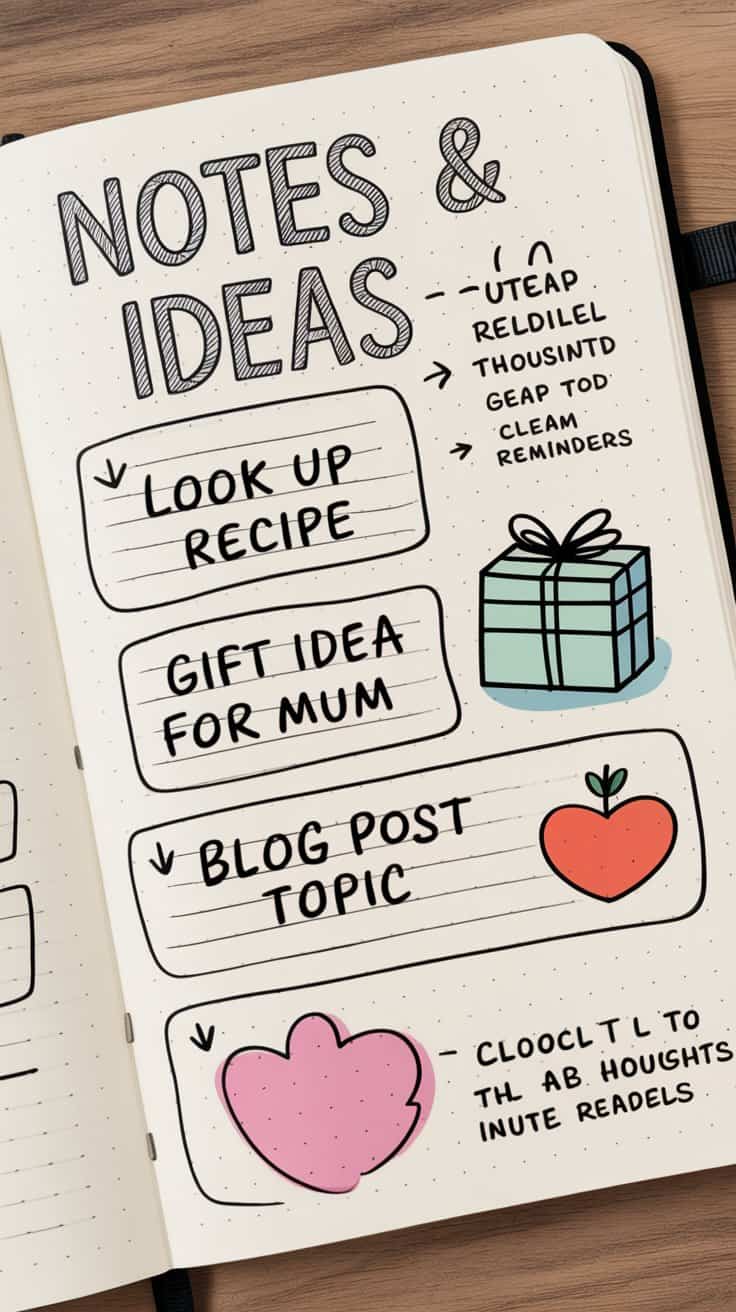 NOTES &
IDEAS
UTEAP
RELDILEL
THOUSINTD
GEAP TOD
CLEAM
REMINDERS
LOOK UP
RECIPE
GIFT IDEA
FOR MUM
BLOG POST
TOPIC
CLOOCL T L TO
THL AB HOUGHTS
INUTE READELS